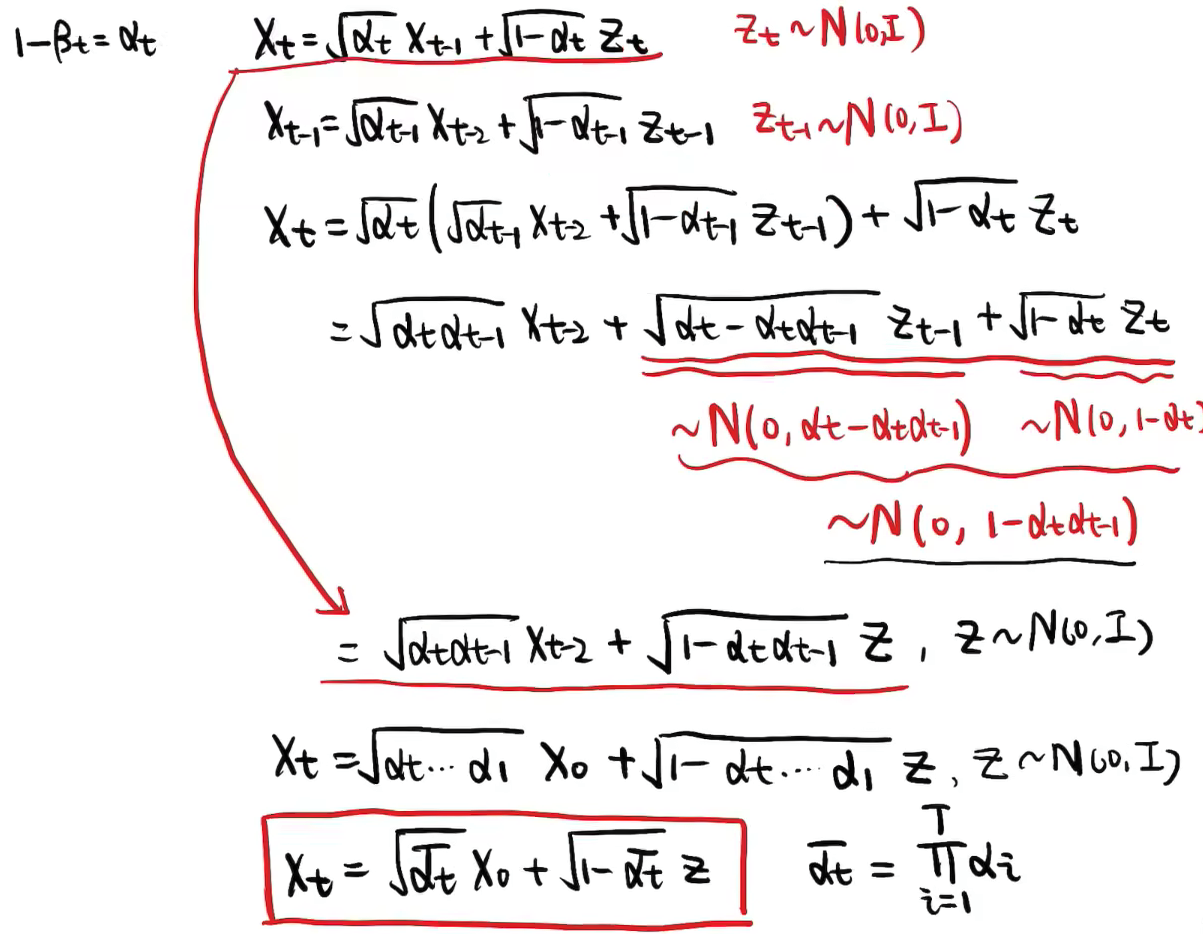 1-βt=αt  Xt=√αt Xt-1+√(1-αt) Zt  Zt~N(0,I)
Xt-1=√αt-1 Xt-2+√(1-αt-1) Zt-1  Zt-1~N(0,I)
Xt=√αt(√αt-1 Xt-2+√(1-αt-1) Zt-1)+√(1-αt) Zt
=√(αtαt-1) Xt-2+√(αt-αtαt-1) Zt-1+√(1-αt) Zt
~N(0,αt-αtαt-1)  ~N(0,1-αt)
~N(0,1-αtαt-1)
=√(αtαt-1) Xt-2+√(1-αtαt-1) Z, Z~N(0,I)
Xt=√(αt⋯α1) X0+√(1-αt⋯α1) Z, Z~N(0,I)
Xt=√ᾱt X0+√(1-ᾱt) Z  ᾱt=∏_{i=1}^{T} αi